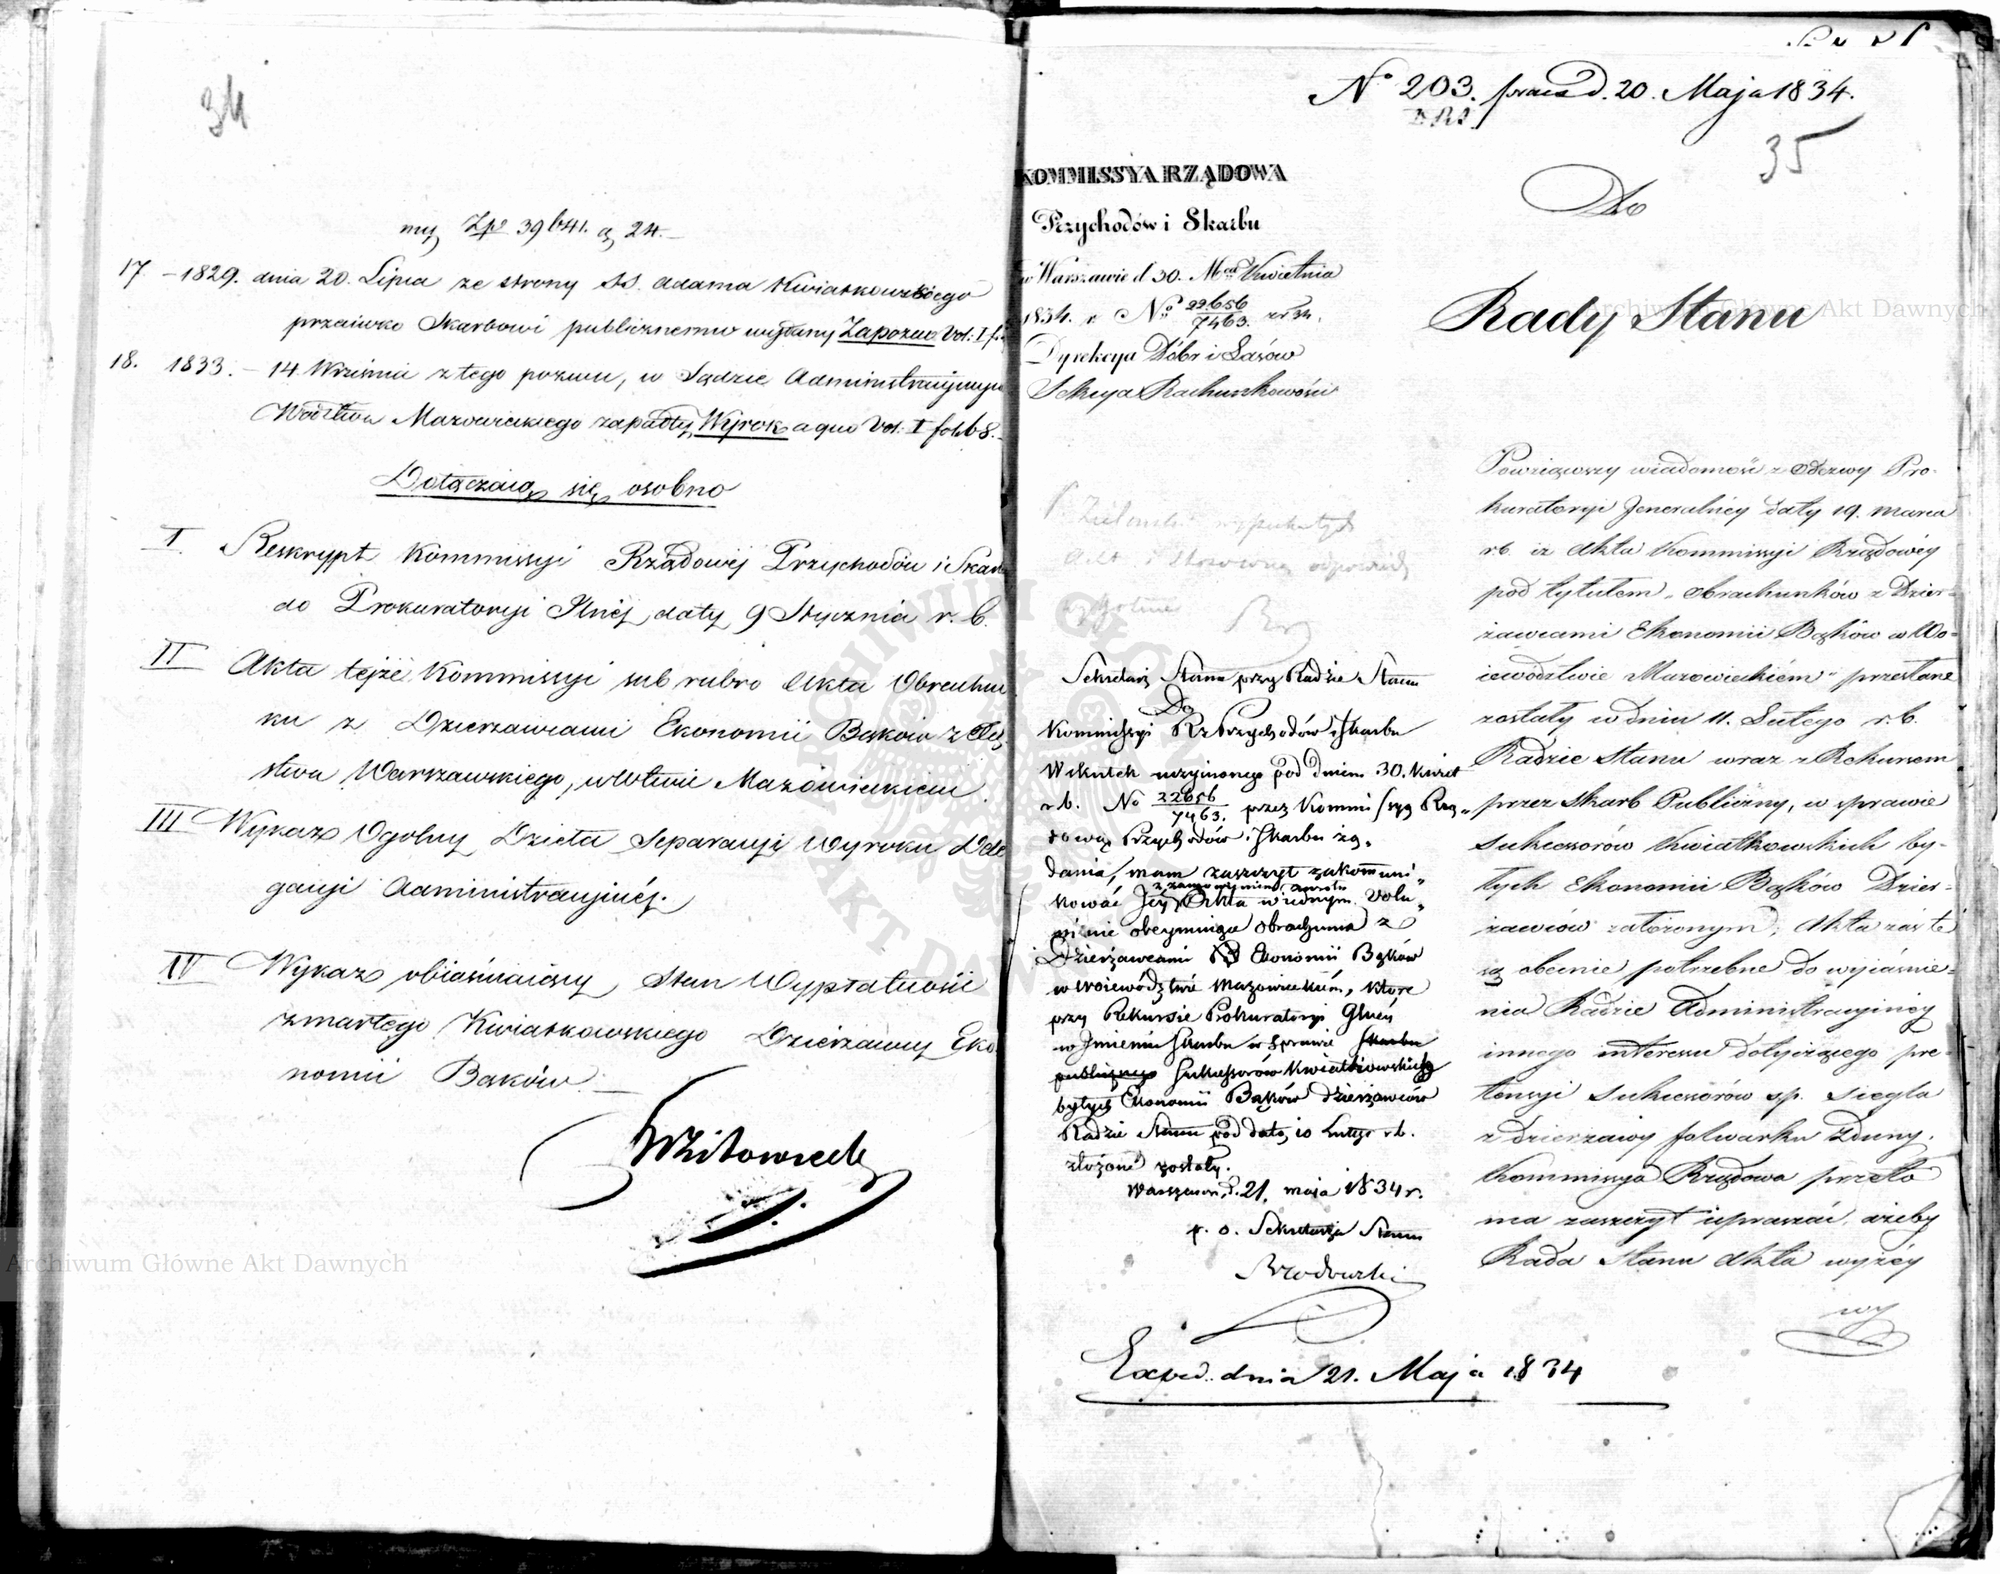 34
my Zp. 39641. g 24.
17. – 1829. dnia 20. Lipca ze strony SS. Adama Kwiatkowskiego
przeciwko Skarbowi publicznemu wydany Zapozew Vol: I f.
18. 1833. – 14 Września z tego pozwu, w Sądzie Administracyjnym
Wodztwa Mazowieckiego zapadły Wyrok a quo Vol: I fol. 68.
Dołączaią się osobno
I Reskrypt Kommissyi Rządowéj Przychodów i Skar
do Prokuratoryi Jlnéj daty 9 Stycznia r. b.
II Akta tejże Kommissyi sub rubro Akta Obrachun
ku z Dzierzawcami Ekonomii Bąków z
stwa Warszawskiego, w Wztwie Mazowieckiem.
III Wykaz Ogolny Dzieła Separacyi Wyroku Dele
gacyi Administracyinéj.
IV Wykaz obiaśniaiący Stan Wypłatności
zmarłego Kwiatkowskiego Dzierzawcy Eko
nomii Bąków. –
Archiwum Główne Akt Dawnych
No 203. praes d. 20. Maja 1834.
35
KOMMISSYA RZĄDOWA
Przychodów i Skarbu
w Warszawie d 30. Mca Kwietnia
1834. r. No 22656/7463.
Dyrekcya Dóbr i Lasów
Sekcya Rachunkowości
Do
Rady Stanu
Archiwum Główne Akt Dawnych
Sekretarz Stanu przy Radzie Stanu
Do
Kommissyi Rz Przychodów i Skarbu
W skutek uczynionego pod dniem 30. Kwiet
r. b. No 22656/7463. przez Kommissyą Rzą„
dową Przychodów i Skarbu żą„
dania, mam zaszczyt zakommuni„
kować Jéj Akta w iednym Volu„
minie obeymuiące obrachunki z
Dzierżawcami Ekonomii Bąków
w Województwie Mazowieckiém, które
przy Rekursie Prokuratoryi Glnéy
w Imieniu Skarbu w sprawie Skarbu
publicznego Sukcessorów Kwiatkowskich
byłych Ekonomii Bąków dzierżawców
Radzie Stanu pod datą 10 Lutego r. b.
złożone zostały.
Warszawa d. 21. maja 1834 r.
p. o. Sekretarza Stanu
Brodowski
Exped. dnia 21. Maja 1834
Powziąwszy wiadomość z Odezwy Pro-
kuratoryi Jeneralnéy daty 19. marca
rb. iż Akta Kommissyi Rządowéy
pod tytułem „Obrachunków z Dzier-
żawcami Ekonomii Bąków w Wo-
iewództwie Mazowieckiém" przesłane
zostały w dniu 11. Lutego r. b.
Radzie Stanu wraz z Rekursem
przez Skarb Publiczny, w sprawie
Sukcessorów Kwiatkowskich by-
łych Ekonomii Bąków Dzier-
żawców założonym; Akta zaś te
są obecnie potrzebne do wyiaśnie-
nia Radzie Administracyinéy
innego interesu dotyczącego pre-
tensyi Sukcessorów sp. Siegla
z dzierzawy folwarku Zduny.
Kommissya Rządowa przeto
ma zaszczyt upraszać, ażeby
Rada Stanu Akta wyżéy
wy